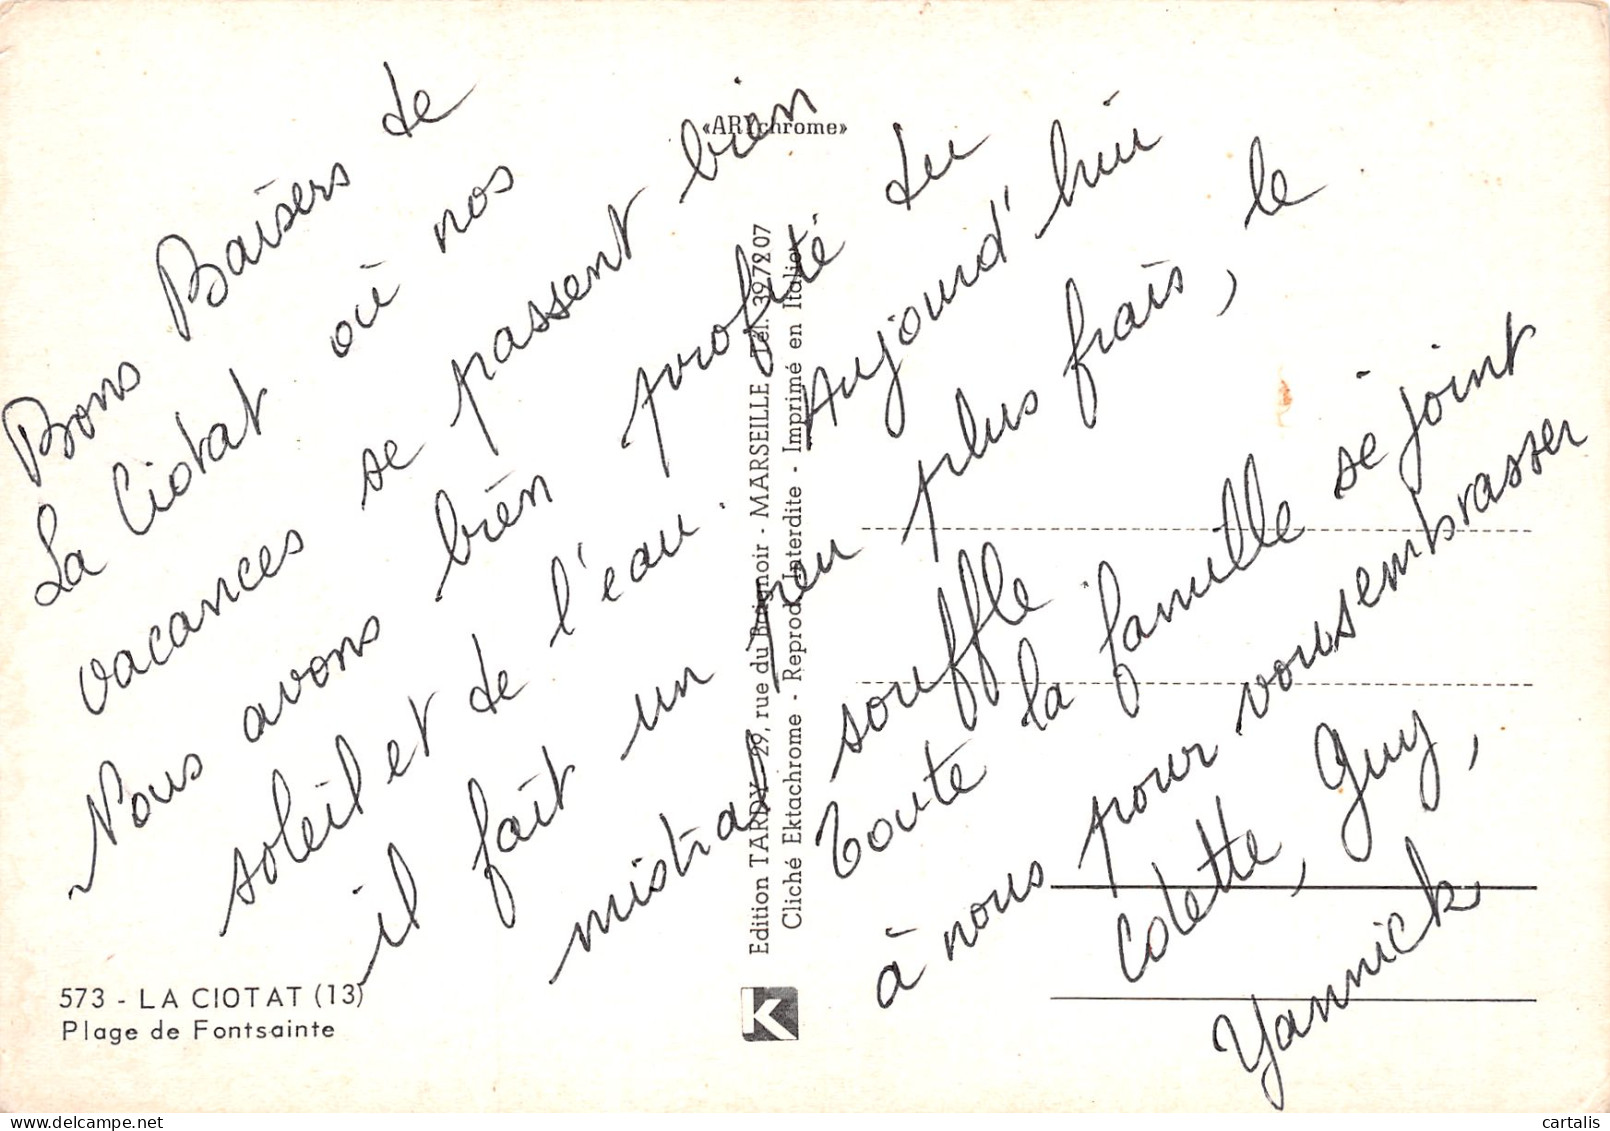 Bons Baisers de
La Ciotat où nos
vacances se passent bien
Nous avons bien profité du
soleil et de l'eau. Aujourd'hui
il fait un peu plus frais, le
mistral souffle
Toute la famille se joint
à nous pour vous embrasser
Colette, Guy,
Yannick
«ARYchrome»
Edition TARDY - 29, rue du Baignoir - MARSEILLE Tél. 39.72 07
Cliché Ektachrome - Reprod. Interdite - Imprimé en Italie
K
573 - LA CIOTAT (13)
Plage de Fontsainte
cartalis